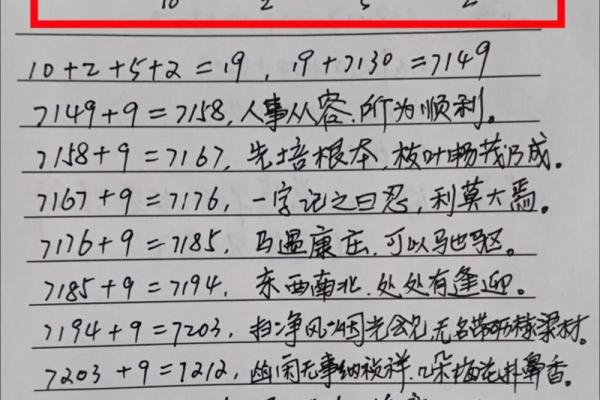 10 2 5 2
10+2+5+2=19, 19+7130=7149
7149+9=7158,人事从容,所为顺利。
7158+9=7167,先培根本,枝叶畅茂乃成。
7167+9=7176,一字记之曰忍,利莫大焉。
7176+9=7185,马遇康庄,可以驰驱。
7185+9=7194,东西南北,处处有逢迎。
7194+9=7203,扫净风烟光会见,无名带砺栋梁材。
7203+9=7212,幽闲无事纳祯祥,几朵梅花扑鼻香。